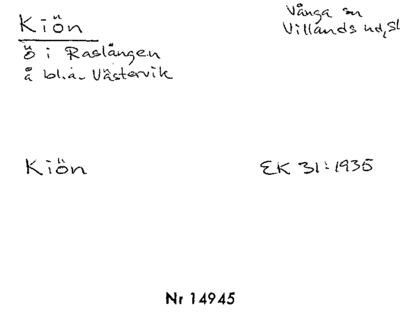 Kiön
Vånga sn
Villands hd, Sk
ö i Raslången
å bl.a. Västervik
Kiön
EK 31:1935
Nr 14945